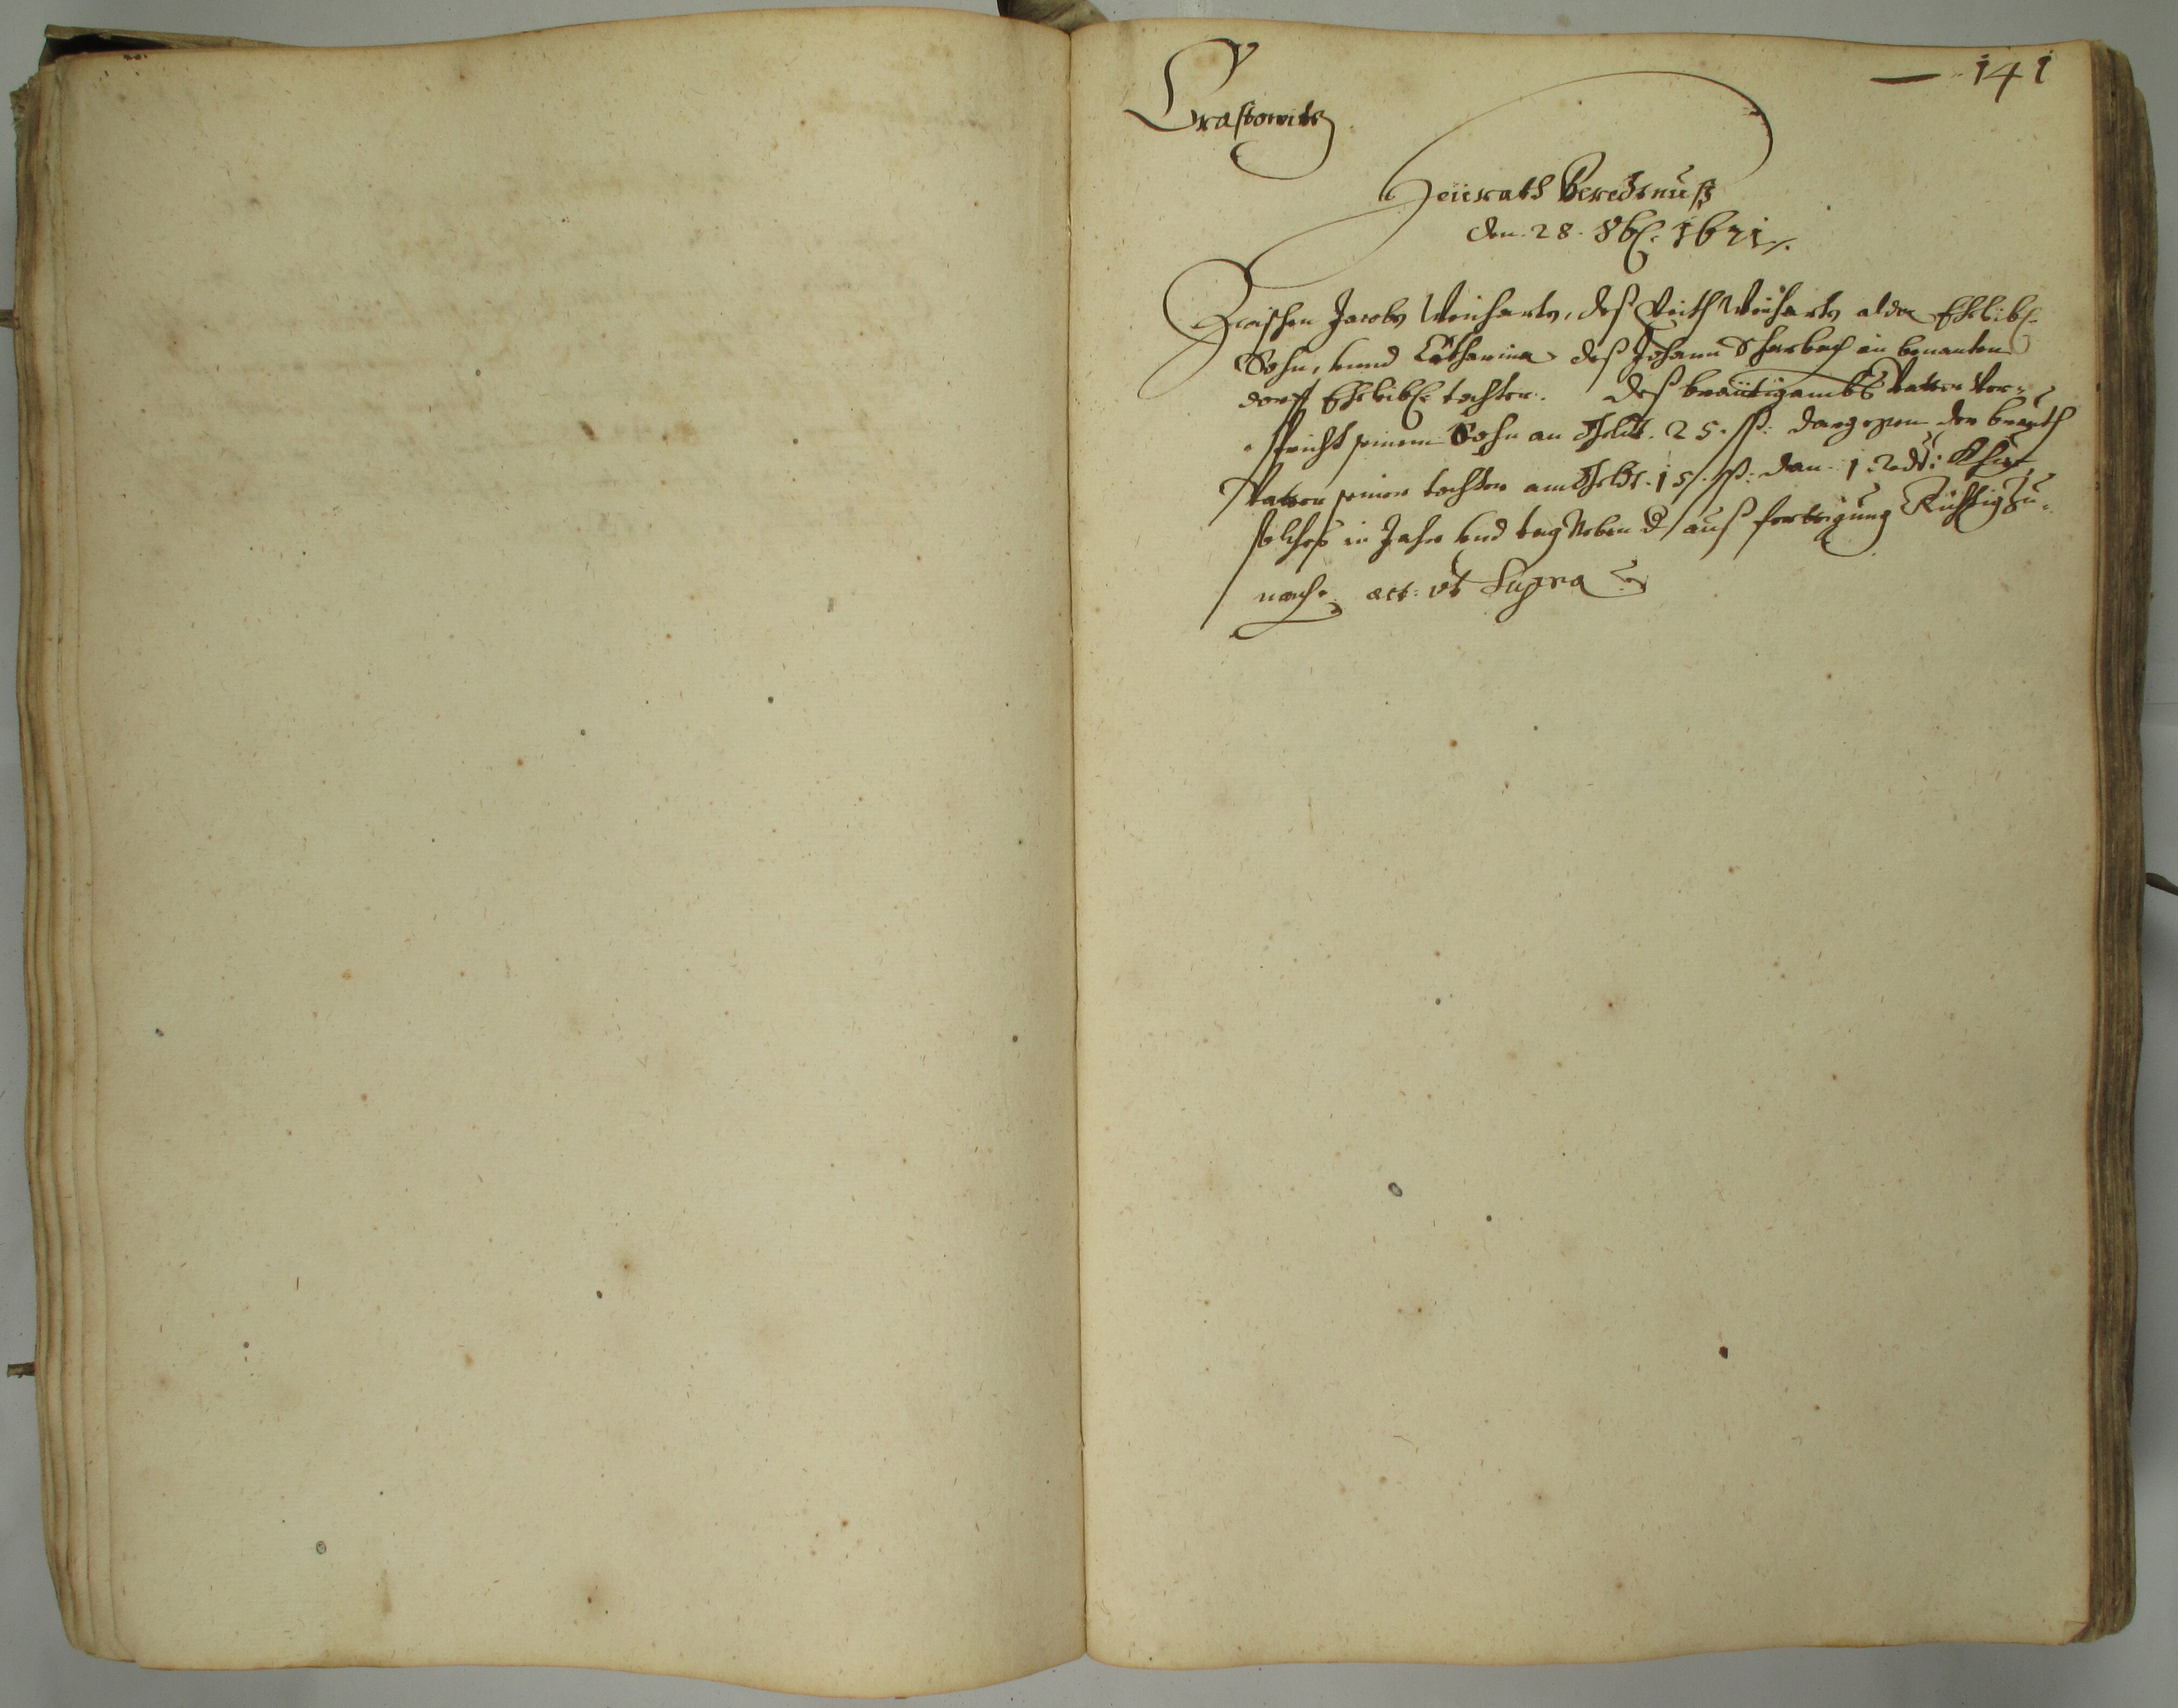 141
Crastowitz
Heürath Beredtnuß
den. 28. 8b[: 1671 /.
Zwischen Jacoben Weinharts, deß Veith Weinharts alda Ehelib[:
Sohn, vnnd Catharina deß Johann Scharbach in benanten
dorff Ehelib[: tochter. deß breütigambs Vatter Ver=
spricht seinem Sohn an Heürt. 25. ß: dargegen der brauth
Vatter seiner tochter am Heürt. 15. ß: dan. 1. Khue
solches in Jahr vnd tag Neben d/ auß fertigung Richtig Zu=
mach. act: vt Supra